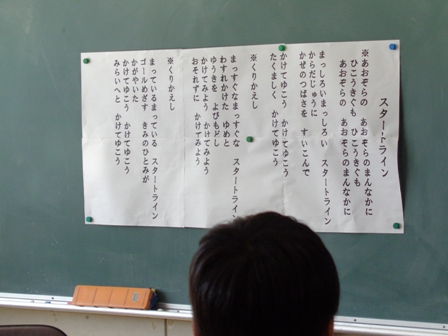 スタートライン
※あおぞらの　あおぞらのまんなかに
ひこうきぐも　ひこうきぐも
あおぞらの　あおぞらのまんなかに
まっしろいまっしろい　スタートライン
からだじゅうに
かぜのつばさを　すいこんで
かけてゆこう　かけてゆこう
たくましく　かけてゆこう
※くりかえし
まっすぐなまっすぐな　スタートライン
わすれかけた　ゆめと
ゆうきを　よびもどし
かけてみよう　かけてみよう
おそれずに　かけてみよう
※くりかえし
まっているまっている　スタートライン
ゴールめざす　きみのひとみが
かがやいた
かけてゆこう　かけてゆこう
みらいへと　かけてゆこう